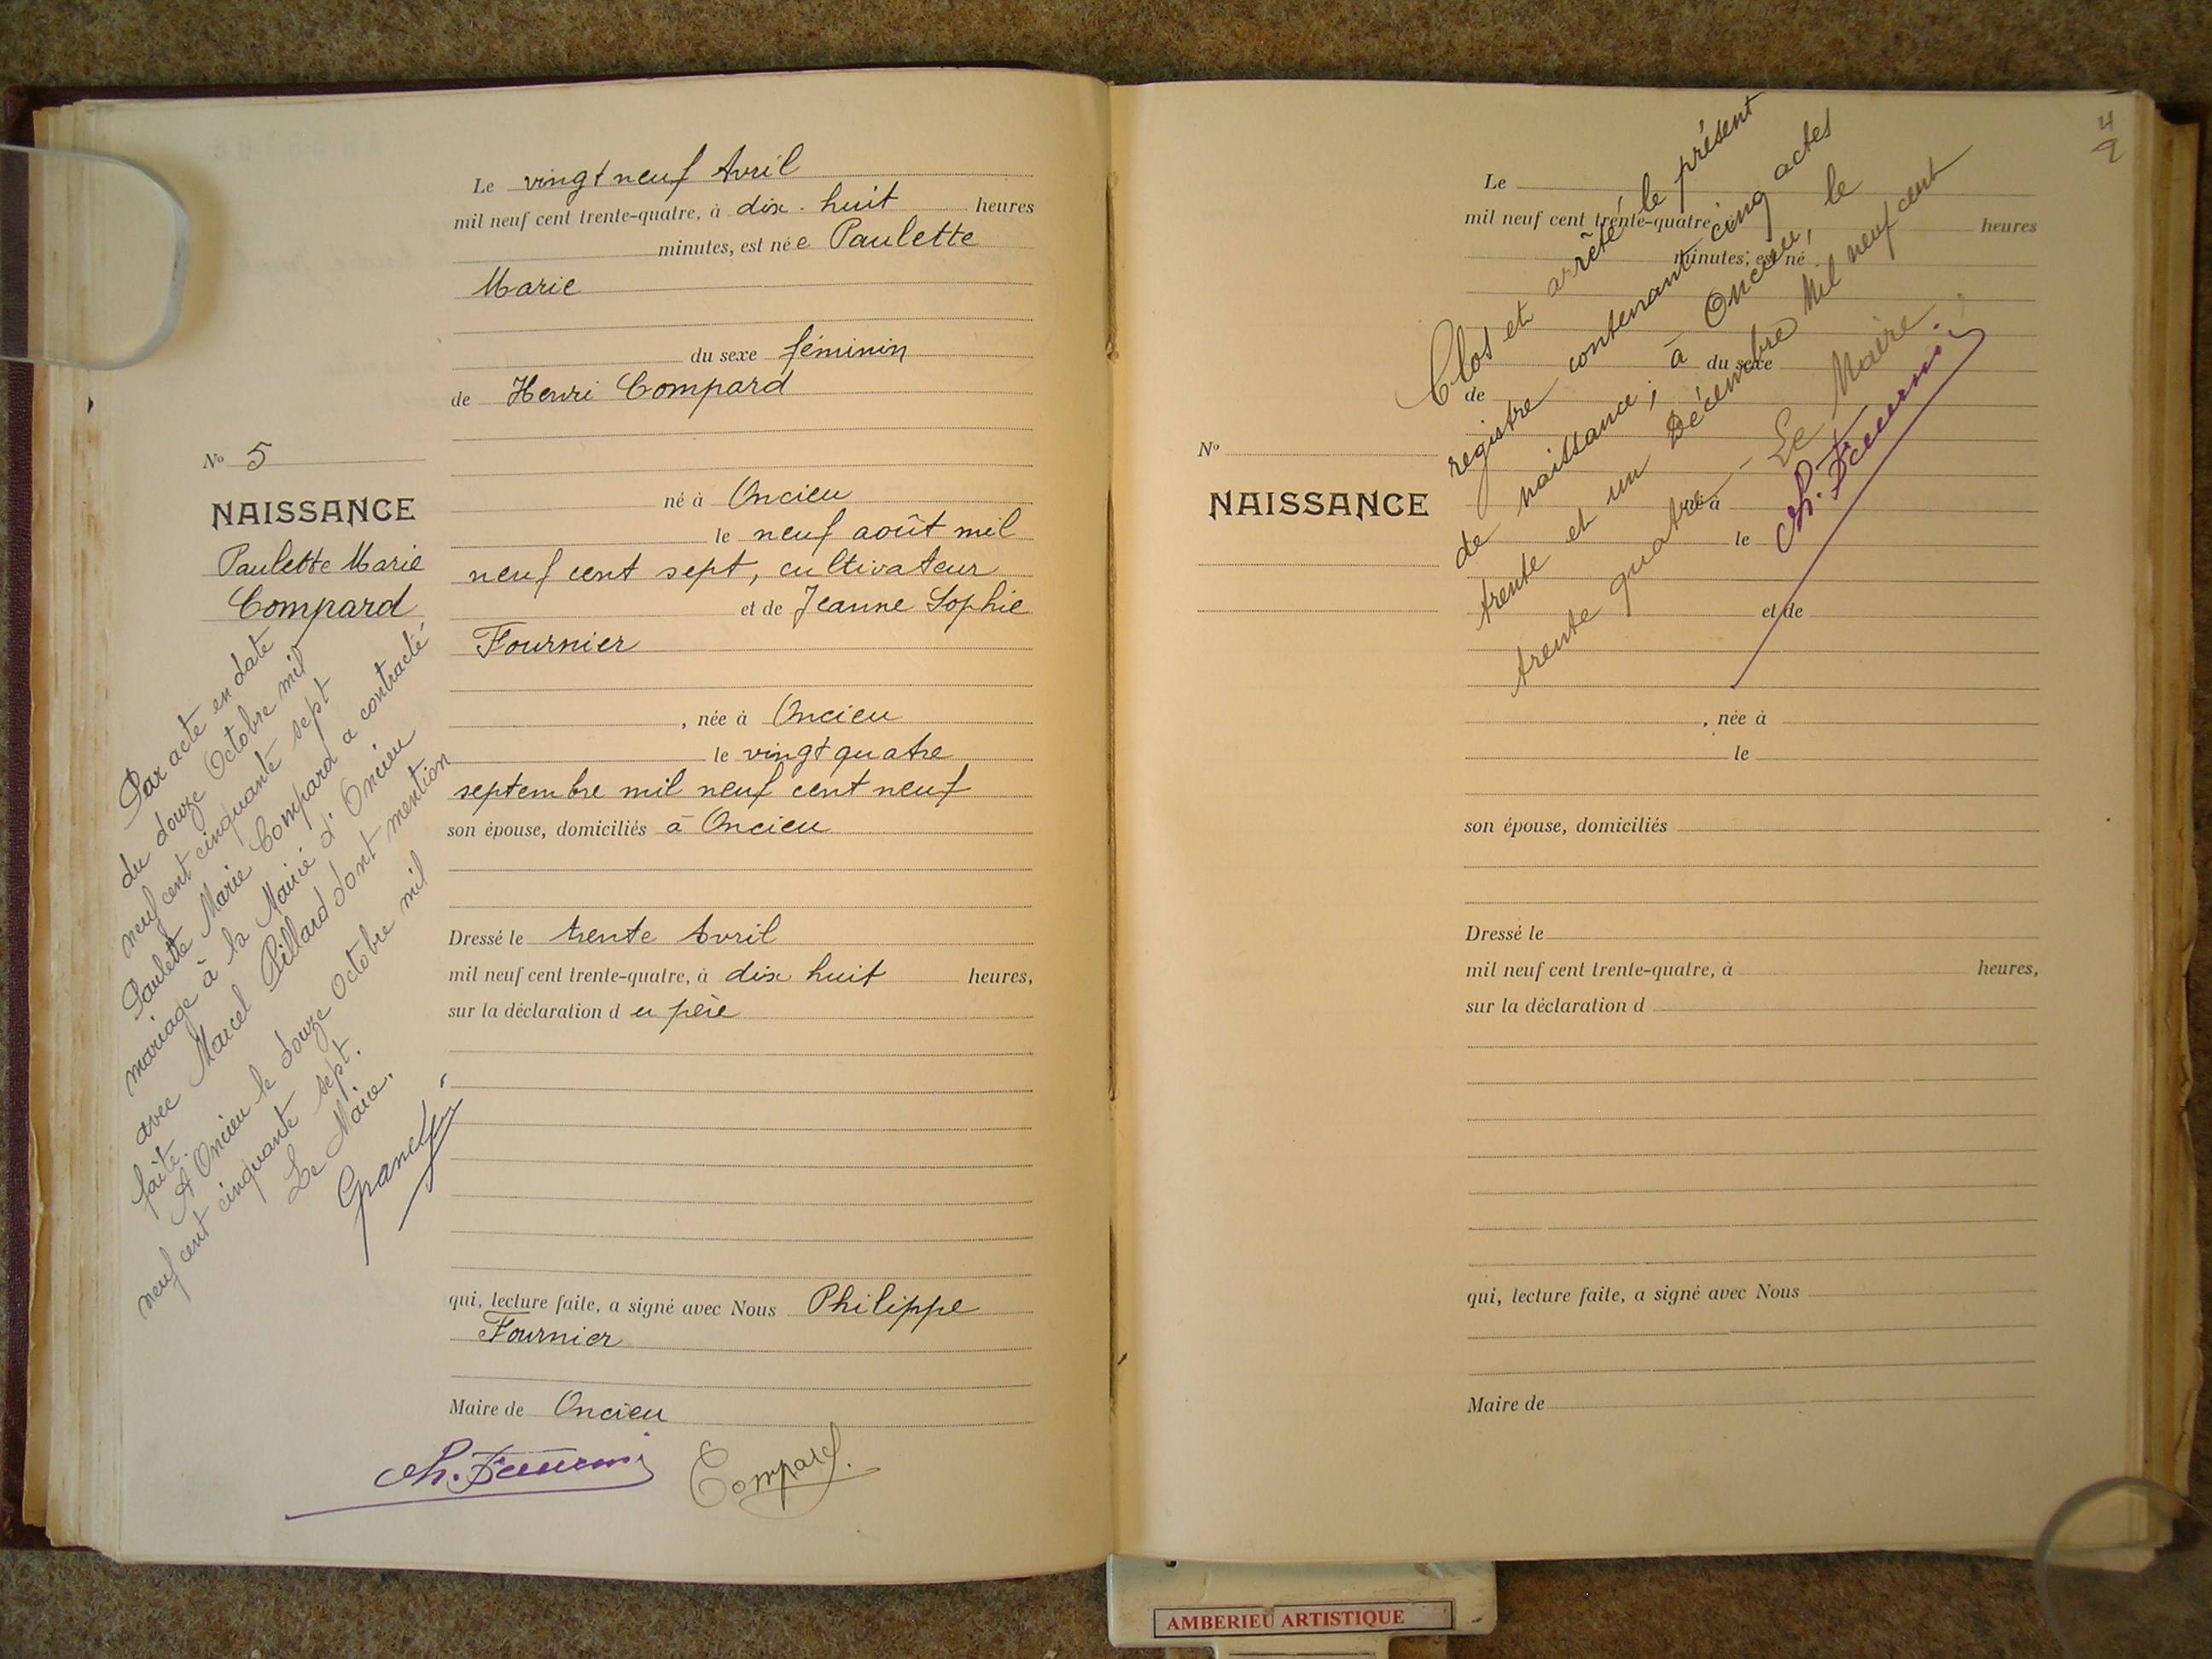 Le vingt neuf Avril
mil neuf cent trente-quatre, à dix-huit heures
minutes, est née Paulette
Marie
du sexe féminin
de Henri Compard
né à Oncieu
le neuf août mil
neuf cent sept, cultivateur
et de Jeanne Sophie
Fournier
, née à Oncieu
le vingt quatre
septembre mil neuf cent neuf
son épouse, domiciliés à Oncieu
Dressé le trente Avril
mil neuf cent trente-quatre, à dix huit heures,
sur la déclaration du père
qui, lecture faite, a signé avec Nous Philippe
Fournier
Maire de Oncieu
Ph. Fournier
Compard.
No 5
NAISSANCE
Paulette Marie
Compard
Par acte en date
du douze Octobre mil
neuf cent cinquante sept
Paulette Marie Compard a contracté
mariage à la Mairie d'Oncieu
avec Marcel Pillard dont mention
faite.
A Oncieu le douze Octobre mil
neuf cent cinquante sept.
Le Maire.
4
2
Le
mil neuf cent trente-quatre, à heures
minutes, est né
du sexe
de
No
NAISSANCE
né à
le
et de
, née à
le
son épouse, domiciliés
Dressé le
mil neuf cent trente-quatre, à heures,
sur la déclaration d
qui, lecture faite, a signé avec Nous
Maire de
Clos et arrêté le présent
registre contenant cinq actes
de naissance, à Oncieu, le
trente et un Décembre Mil neuf cent
trente quatre - Le Maire
Ph. Fournier
AMBERIEU ARTISTIQUE